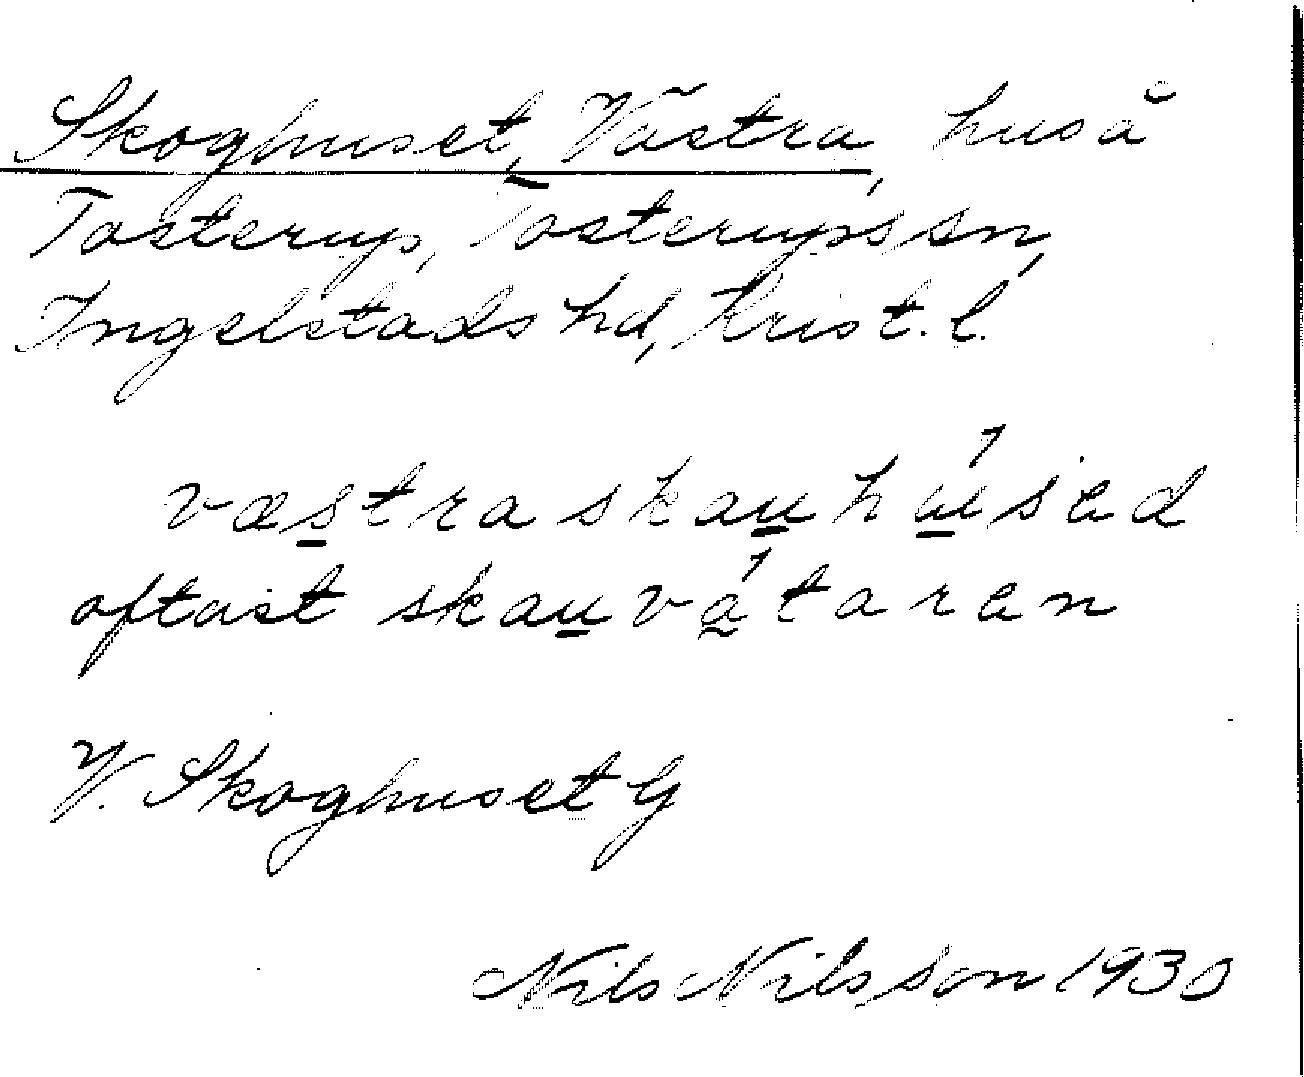 Skoghuset, Västra, hus å
Tosterup, Tosterups sn,
Ingelstads hd, Krist. l.
væstra skauhu̇́sed
oftast skauvátaren
V. Skoghuset G
Nils Nilsson 1930